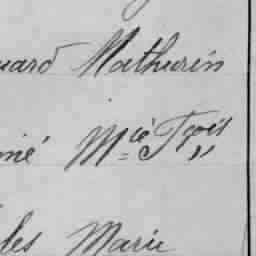 uard Mathurin
né Mie Fçois
les Marie